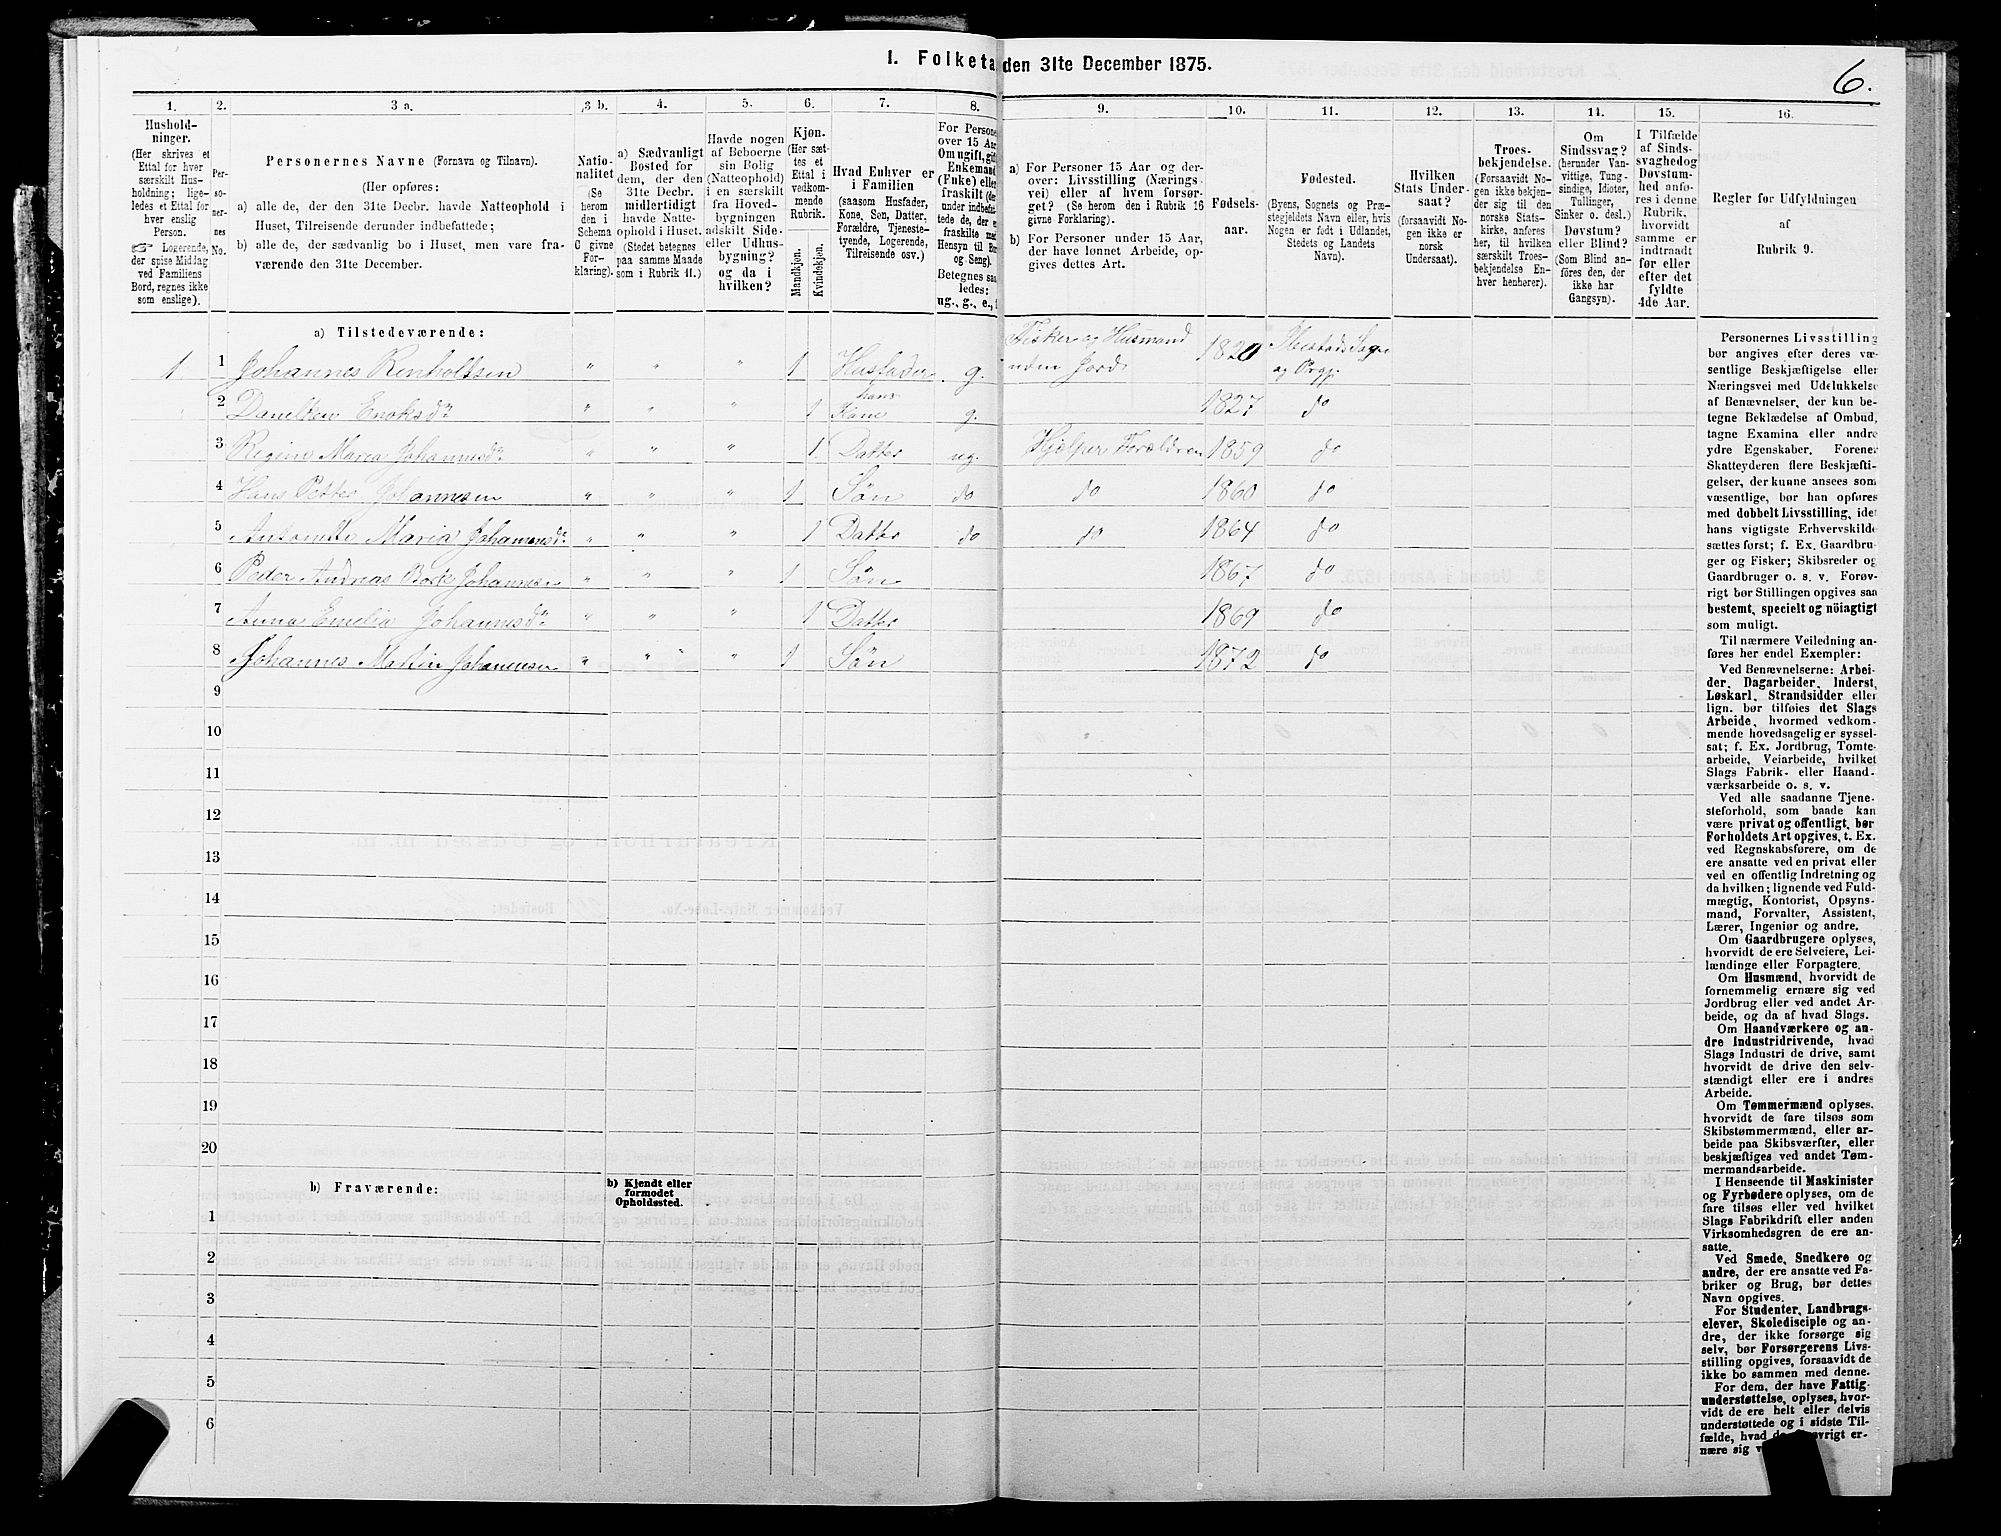 I. Folketa den 31te December 1875.
6.
1. 2. 3 a. 3 b. 4. 5. 6. 7. 8. 9. 10. 11. 12. 13. 14. 15. 16.
Hushold-
ninger.
(Her skrives et
Ettal for hver
særskilt Hus-
holdning; lige-
ledes et Ettal for
hver enslig
Person.
☞ Logerende,
der spise Middag
ved Familiens
Bord, regnes ikke
som enslige).
Per-
so-
ner-
nes
No.
Personernes Navne (Fornavn og Tilnavn).
(Her opføres:
a) alle de, der den 31te Decbr. havde Natteophold i
Huset, Tilreisende derunder indbefattede;
b) alle de, der sædvanlig bo i Huset, men vare fra-
værende den 31te December.
Natio-
nalitet
(Se
herom
den i
Schema
C givne
For-
klaring).
a) Sædvanligt
Bosted for
dem, der den
31te Decbr.
midlertidigt
havde Natte-
ophold i Huset.
(Stedet betegnes
paa samme Maade
som i Rubrik 11.)
Havde nogen
af Beboerne
sin Bolig
(Natteophold)
i en særskilt
fra Hoved-
bygningen
adskilt Side-
eller Udhus-
bygning?
og da i
hvilken?
Kjøn.
(Her sæt-
tes et
Ettal i
vedkom-
mende
Rubrik.
Mandkjøn.
Kvindekjøn.
Hvad Enhver er
i Familien
(saasom Husfader,
Kone, Søn, Datter,
Forældre, Tjeneste-
tyende, Logerende,
Tilreisende osv.)
For Persone
over 15 Aar
Om ugift, gift
Enkemand
(Enke) eller
fraskilt (der
under indbefat-
tede de, der er
fraskilte med
Hensyn til Bor
og Seng).
Betegnes saa
ledes:
ug., g., e., f
a) For Personer 15 Aar og der-
over: Livsstilling (Nærings-
vei) eller af hvem forsør-
get? (Se herom den i Rubrik 16
givne Forklaring).
b) For Personer under 15 Aar,
der have lønnet Arbeide, op-
gives dettes Art.
Fødsels-
aar.
Fødested.
(Byens, Sognets og Præ-
stegjeldets Navn eller, hvis
Nogen er født i Udlandet,
Stedets og Landets
Navn).
Hvilken
Stats Under-
saat?
(forsaavidt No-
gen ikke er
norsk
Undersaat).
Troes-
bekjendelse.
(Forsaavidt No-
gen ikke bekjen-
der sig til den
norske Stats-
kirke, anføres
her, til hvilken
særskilt Troes-
bekjendelse En-
hver henhører).
Om
Sindssvag?
(herunder Van-
vittige, Tung-
sindige, Idioter,
Tullinger,
Sinker o. desl.)
Døvstum?
eller Blind?
(Som Blind an-
føres den, der
ikke har
Gangsyn).
I Tilfælde
af Sinds-
svaghed og
Døvstum-
hed anfø-
res i denne
Rubrik,
hvorvidt
samme er
indtraadt
før eller
efter det
fyldte
4de Aar.
Regler for Udfyldningen
af
Rubrik 9.
a) Tilstedeværende:
1 1 Johannes Renholtsen " " " 1 Husfader g. Fisker og Husmand uden Jord. 1820 Ibestads Sogn og Prgj.
2 Danelken Enoksdr " " " 1 hans Kone g. 1827 do
3 Regine Maria Johannesdr " " " 1 Datter ug. Hjælper Forældren 1859 do
4 Hans Petter Johannesen " " " 1 Søn do do 1860 do
5 Antonette Maria Johannesdr " " " 1 Datter do do 1864 do
6 Peder Andreas Johannesen " " " 1 Søn 1867 do
7 Anna Emelia Johannesdr " " " 1 Datter 1869 do
8 Johannes Martin Johannesen " " " 1 Søn 1872 do
9
10
11
12
13
14
15
16
17
18
19
20
b) Fraværende:
b) Kjendt eller
formodet
Opholdssted.
1
2
3
4
5
6
Personernes Livsstilling
bør angives efter deres væ-
sentlige Beskjæftigelse eller
Næringsvei med Udelukkelse
af Benævnelser, der kun be-
tegne Beklædelse af Ombud,
tagne Examina eller andre
ydre Egenskaber. Forener
Skatteyderen flere Beskjæfti-
gelser, der kunne ansees som
væsentlige, bør han opføres
med dobbelt Livsstilling, idet
hans vigtigste Erhvervskilde
sættes først; f. Ex. Gaardbru-
ger og Fisker; Skibsreder og
Gaardbruger o. s. v. Forøv-
rigt bør Stillingen opgives saa
bestemt, specielt og nöiagtigt
som muligt.
Til nærmere Veiledning an-
føres her endel Exempler:
Ved Benævnelserne: Arbei-
der, Dagarbeider, Inderst,
Løskarl, Strandsidder eller
lign. bør tilføies det Slags
Arbeide, hvormed vedkom-
mende hovedsagelig er syssel-
sat; f. Ex. Jordbrug, Tomte-
arbeide, Veiarbeide, hvilket
Slags Fabrik- eller Haand-
værksarbeide o. s. v.
Ved alle saadanne Tjene-
steforhold, som baade kan
være privat og offentligt, bør
Forholdets Art opgives, t. Ex.
ved Regnskabsførere, om de
ere ansatte ved en privat eller
ved en offentlig Indretning og
da hvilken; lignende ved Fuld-
mægtig, Kontorist, Opsyns-
mand, Forvalter, Assistent,
Lærer, Ingeniør og andre.
Om Gaardbrugere oplyses,
hvorvidt de ere Selveiere, Lei-
lændinge eller Forpagtere.
Om Husmænd, hvorvidt de
fornemmelig ernære sig ved
Jordbrug eller ved andet Ar-
beide, og da af hvad Slags.
Om Haandværkere og an-
dre Industridrivende, hvad
Slags Industri de drive, samt
hvorvidt de drive den selv-
stændigt eller ere i andres
Arbeide.
Om Tømmermænd oplyses,
hvorvidt de fare tilsøs som
Skibstømmermænd, eller ar-
beide paa Skibsværfter, eller
beskjæftiges ved andet Tøm-
mermandsarbeide.
I Henseende til Maskinister
og Fyrbødere oplyses, om de
fare tilsøs eller ved hvilket
Slags Fabrikdrift eller anden
Virksomhedsgren de ere an-
satte.
Ved Smede, Snedkere og
andre, der ere ansatte ved Fa-
briker og Brug, bør dettes
Navn opgives.
For Studenter, Landbrugs-
elever, Skoledisciple og an-
dre, der ikke forsørge sig
selv, bør Forsørgerens Livs-
stilling opgives, forsaavidt de
ikke bo sammen med denne.
For dem, der have Fattig-
understøttelse, oplyses, hvor-
vidt de ere helt eller delvis
understøttede og i sidste Til-
fælde, hvad de vrigt er-
nære sig